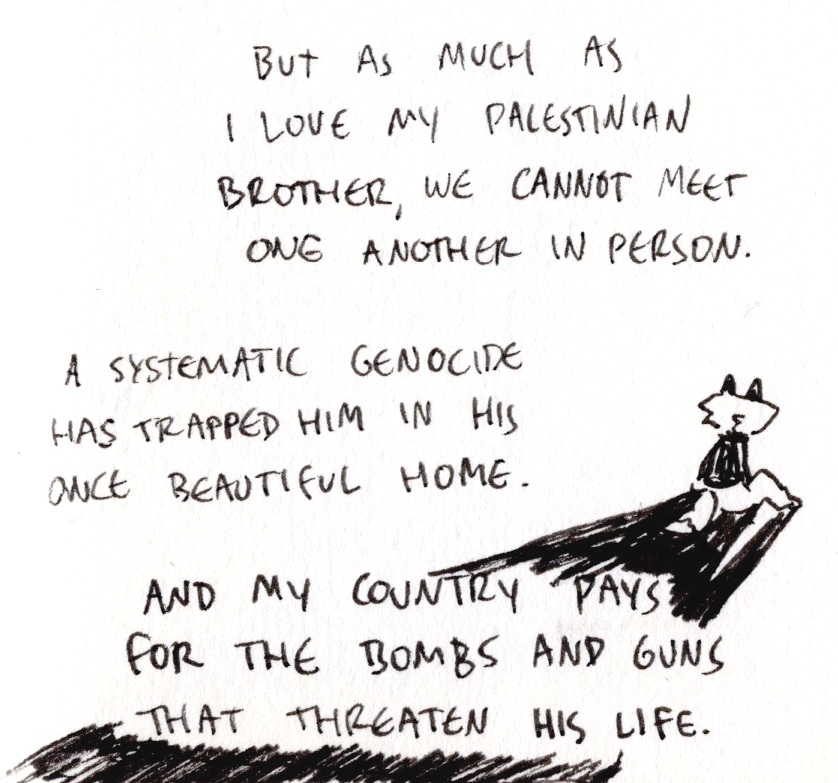 BUT AS MUCH AS
I LOVE MY PALESTINIAN
BROTHER, WE CANNOT MEET
ONE ANOTHER IN PERSON.
A SYSTEMATIC GENOCIDE
HAS TRAPPED HIM IN HIS
ONCE BEAUTIFUL HOME.
AND MY COUNTRY PAYS
FOR THE BOMBS AND GUNS
THAT THREATEN HIS LIFE.